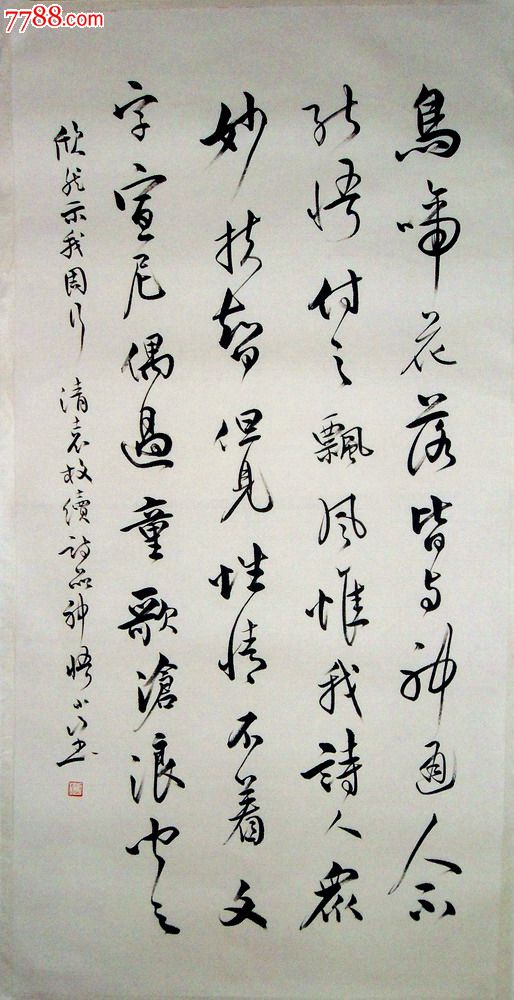 7788.com
鳥啼花落皆与神通人不
能悟付之飄風惟我詩人眾
妙扶智但見性情不着文
字宣尼偶過童歌滄浪聞之
欣然示我周行 清袁枚續詩品神悟